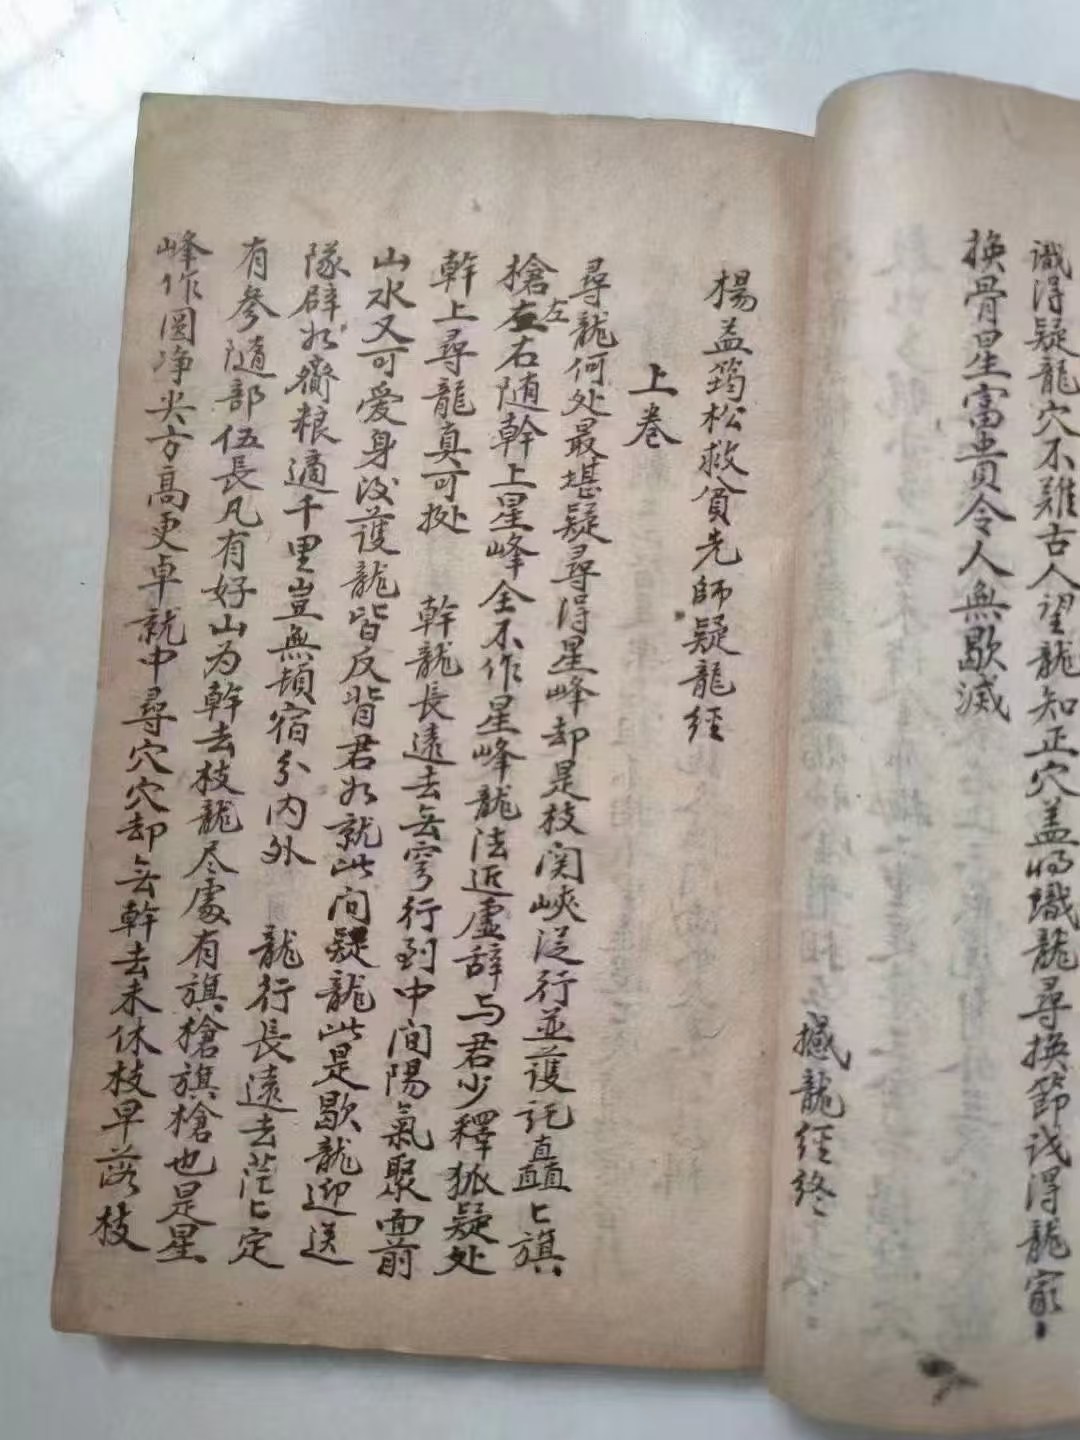 識得疑龍穴不難古人望龍知正穴盖將識龍尋換節識得龍家
換骨星富貴令人無歇滅
撼龍經終
楊益筠松救貧先師疑龍經
上卷
尋龍何处最堪疑尋得星峰却是枝関峽從行並護託矗矗匕旗
槍左右随幹上星峰全不作星峰龍法近虚辞与君少釋狐疑处
幹上尋龍真可挀 幹龍長遠去無穹行到中間陽氣聚面前
山水又可爱身後護龍皆反背君如就此间疑龍此是歇龍迎送
隊辟如齎粮適千里豈無頓宿分内外 龍行長遠去茫匕定
有參隨部伍長凡有好山为幹去枝龍尽處有旗槍旗槍也是星
峰作圓净尖方高更卓就中尋穴穴却無幹去未休枝早落枝